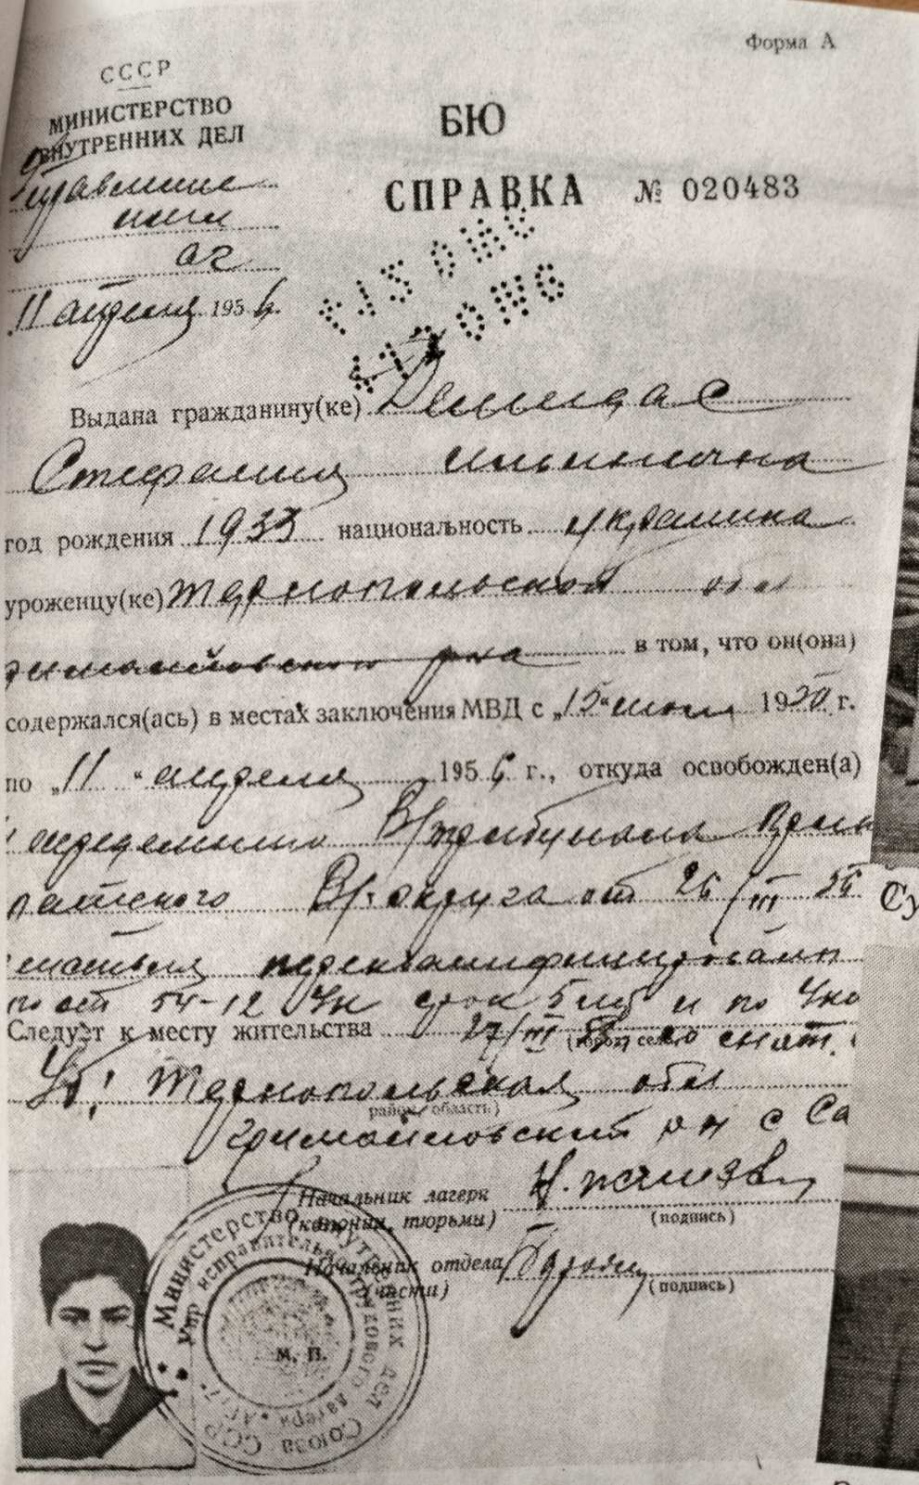 Форма А
СССР
МИНИСТЕРСТВО
ВНУТРЕННИХ ДЕЛ
БЮ
СПРАВКА № 020483
11 апреля 1956 г.
Выдана гражданину(ке)
Стефания Ильинична
год рождения 1933 национальность украинка
уроженцу(ке) Тернопольской обл
гримайловского р-на в том, что он(она)
содержался(ась) в местах заключения МВД с „15“ июля 1950 г.
по „11“ апреля 1956 г., откуда освобожден(а)
определению В/трибунала
В/округа от 26/III 56
переквалифицирован
по ст 54-12 УК срок 5 лет и по Ука
Следует к месту жительства 27/III со снят.
(город, село)
Тернопольская обл
район, область)
Гримайловский р-н с Са
Начальник лагеря
(колонии, тюрьмы)
(подпись)
Начальник отдела
(части)
(подпись)
Министерство внутренних дел Союза ССР
Упр исправительно трудового лагеря
М. П.
Су